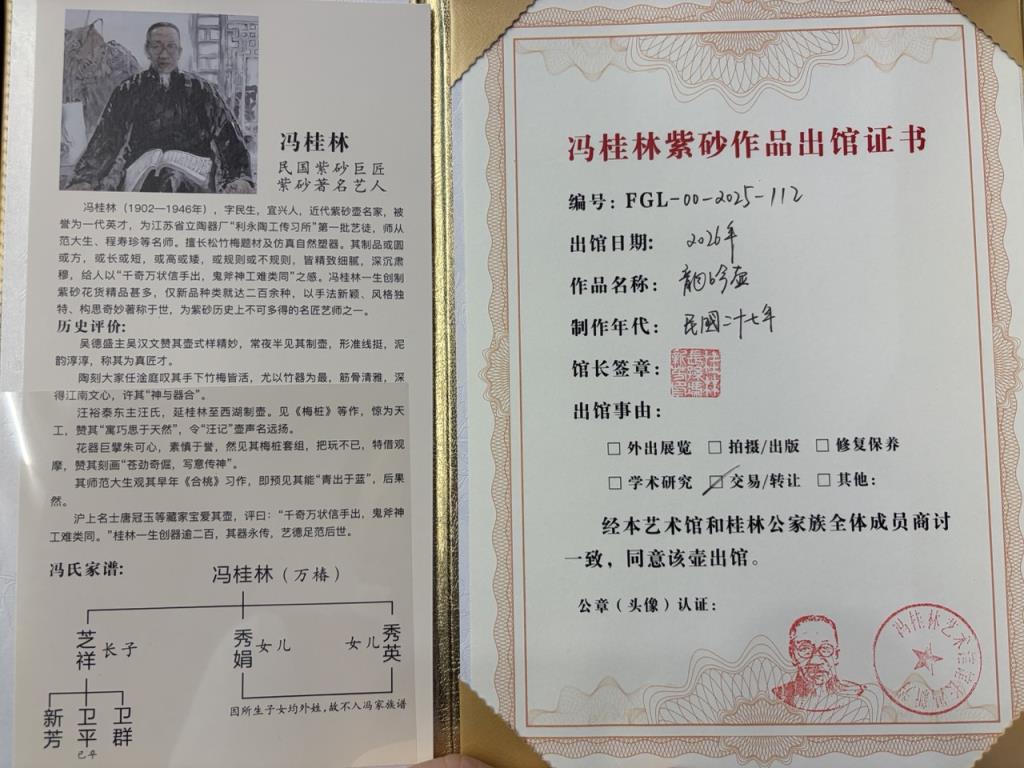 冯桂林
民国紫砂巨匠
紫砂著名艺人
冯桂林（1902—1946年），字民生，宜兴人，近代紫砂壶名家，被
誉为一代英才，为江苏省立陶器厂“利永陶工传习所”第一批艺徒，师从
范大生、程寿珍等名师。擅长松竹梅题材及仿真自然塑器。其制品或圆
或方，或长或短，或高或矮，或规则或不规则，皆精致细腻，深沉肃
穆，给人以“千奇万状信手出，鬼斧神工难类同”之感。冯桂林一生创制
紫砂花货精品甚多，仅新品种类就达二百余种，以手法新颖、风格独
特、构思奇妙著称于世，为紫砂历史上不可多得的名匠艺师之一。
历史评价:
吴德盛主吴汉文赞其壶式样精妙，常夜半见其制壶，形准线挺，泥
韵淳淳，称其为真匠才。
陶刻大家任淦庭叹其手下竹梅皆活，尤以竹器为最，筋骨清雅，深
得江南文心，许其“神与器合”。
汪裕泰东主汪氏，延桂林至西湖制壶。见《梅桩》等作，惊为天
工，赞其“寓巧思于天然”，令“汪记”壶声名远扬。
花器巨擘朱可心，素慎于誉，然见其梅桩套组，把玩不已，特借观
摩，赞其刻画“苍劲奇倔，写意传神”。
其师范大生观其早年《合桃》习作，即预见其能“青出于蓝”，后果
然。
沪上名士唐冠玉等藏家宝爱其壶，评曰：“千奇万状信手出，鬼斧神
工难类同。”桂林一生创器逾二百，其器永传，艺德足范后世。
冯氏家谱:
冯桂林（万椿）
芝祥 长子
秀娟 女儿
女儿 秀英
因所生子女均外姓,故不入冯家族谱
新芳
卫平
已卒
卫群
冯桂林紫砂作品出馆证书
编号: FGL-00-2025-112
出馆日期: 2026年
作品名称: 龍吟壶
制作年代: 民國二十七年
馆长签章:
出馆事由:
□ 外出展览 □ 拍摄/出版 □ 修复保养
□ 学术研究 □ 交易/转让 □ 其他:
经本艺术馆和桂林公家族全体成员商讨
一致，同意该壶出馆。
公章（头像）认证:
冯桂林艺术